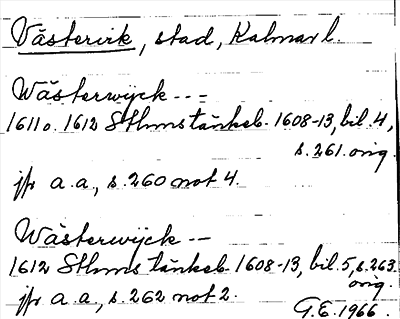 Västervik, stad, Kalmar l.
Wästerwijck - - =
1611 o. 1612 Sthms tänkeb. 1608-13, bil. 4,
s. 261. orig.
jfr a.a., s. 260 not 4.
Wästerwijck - -
1612 Sthms tänkeb. 1608-13, bil. 5, s. 263.
orig.
jfr a.a., s. 262 not 2.
G.E. 1966.